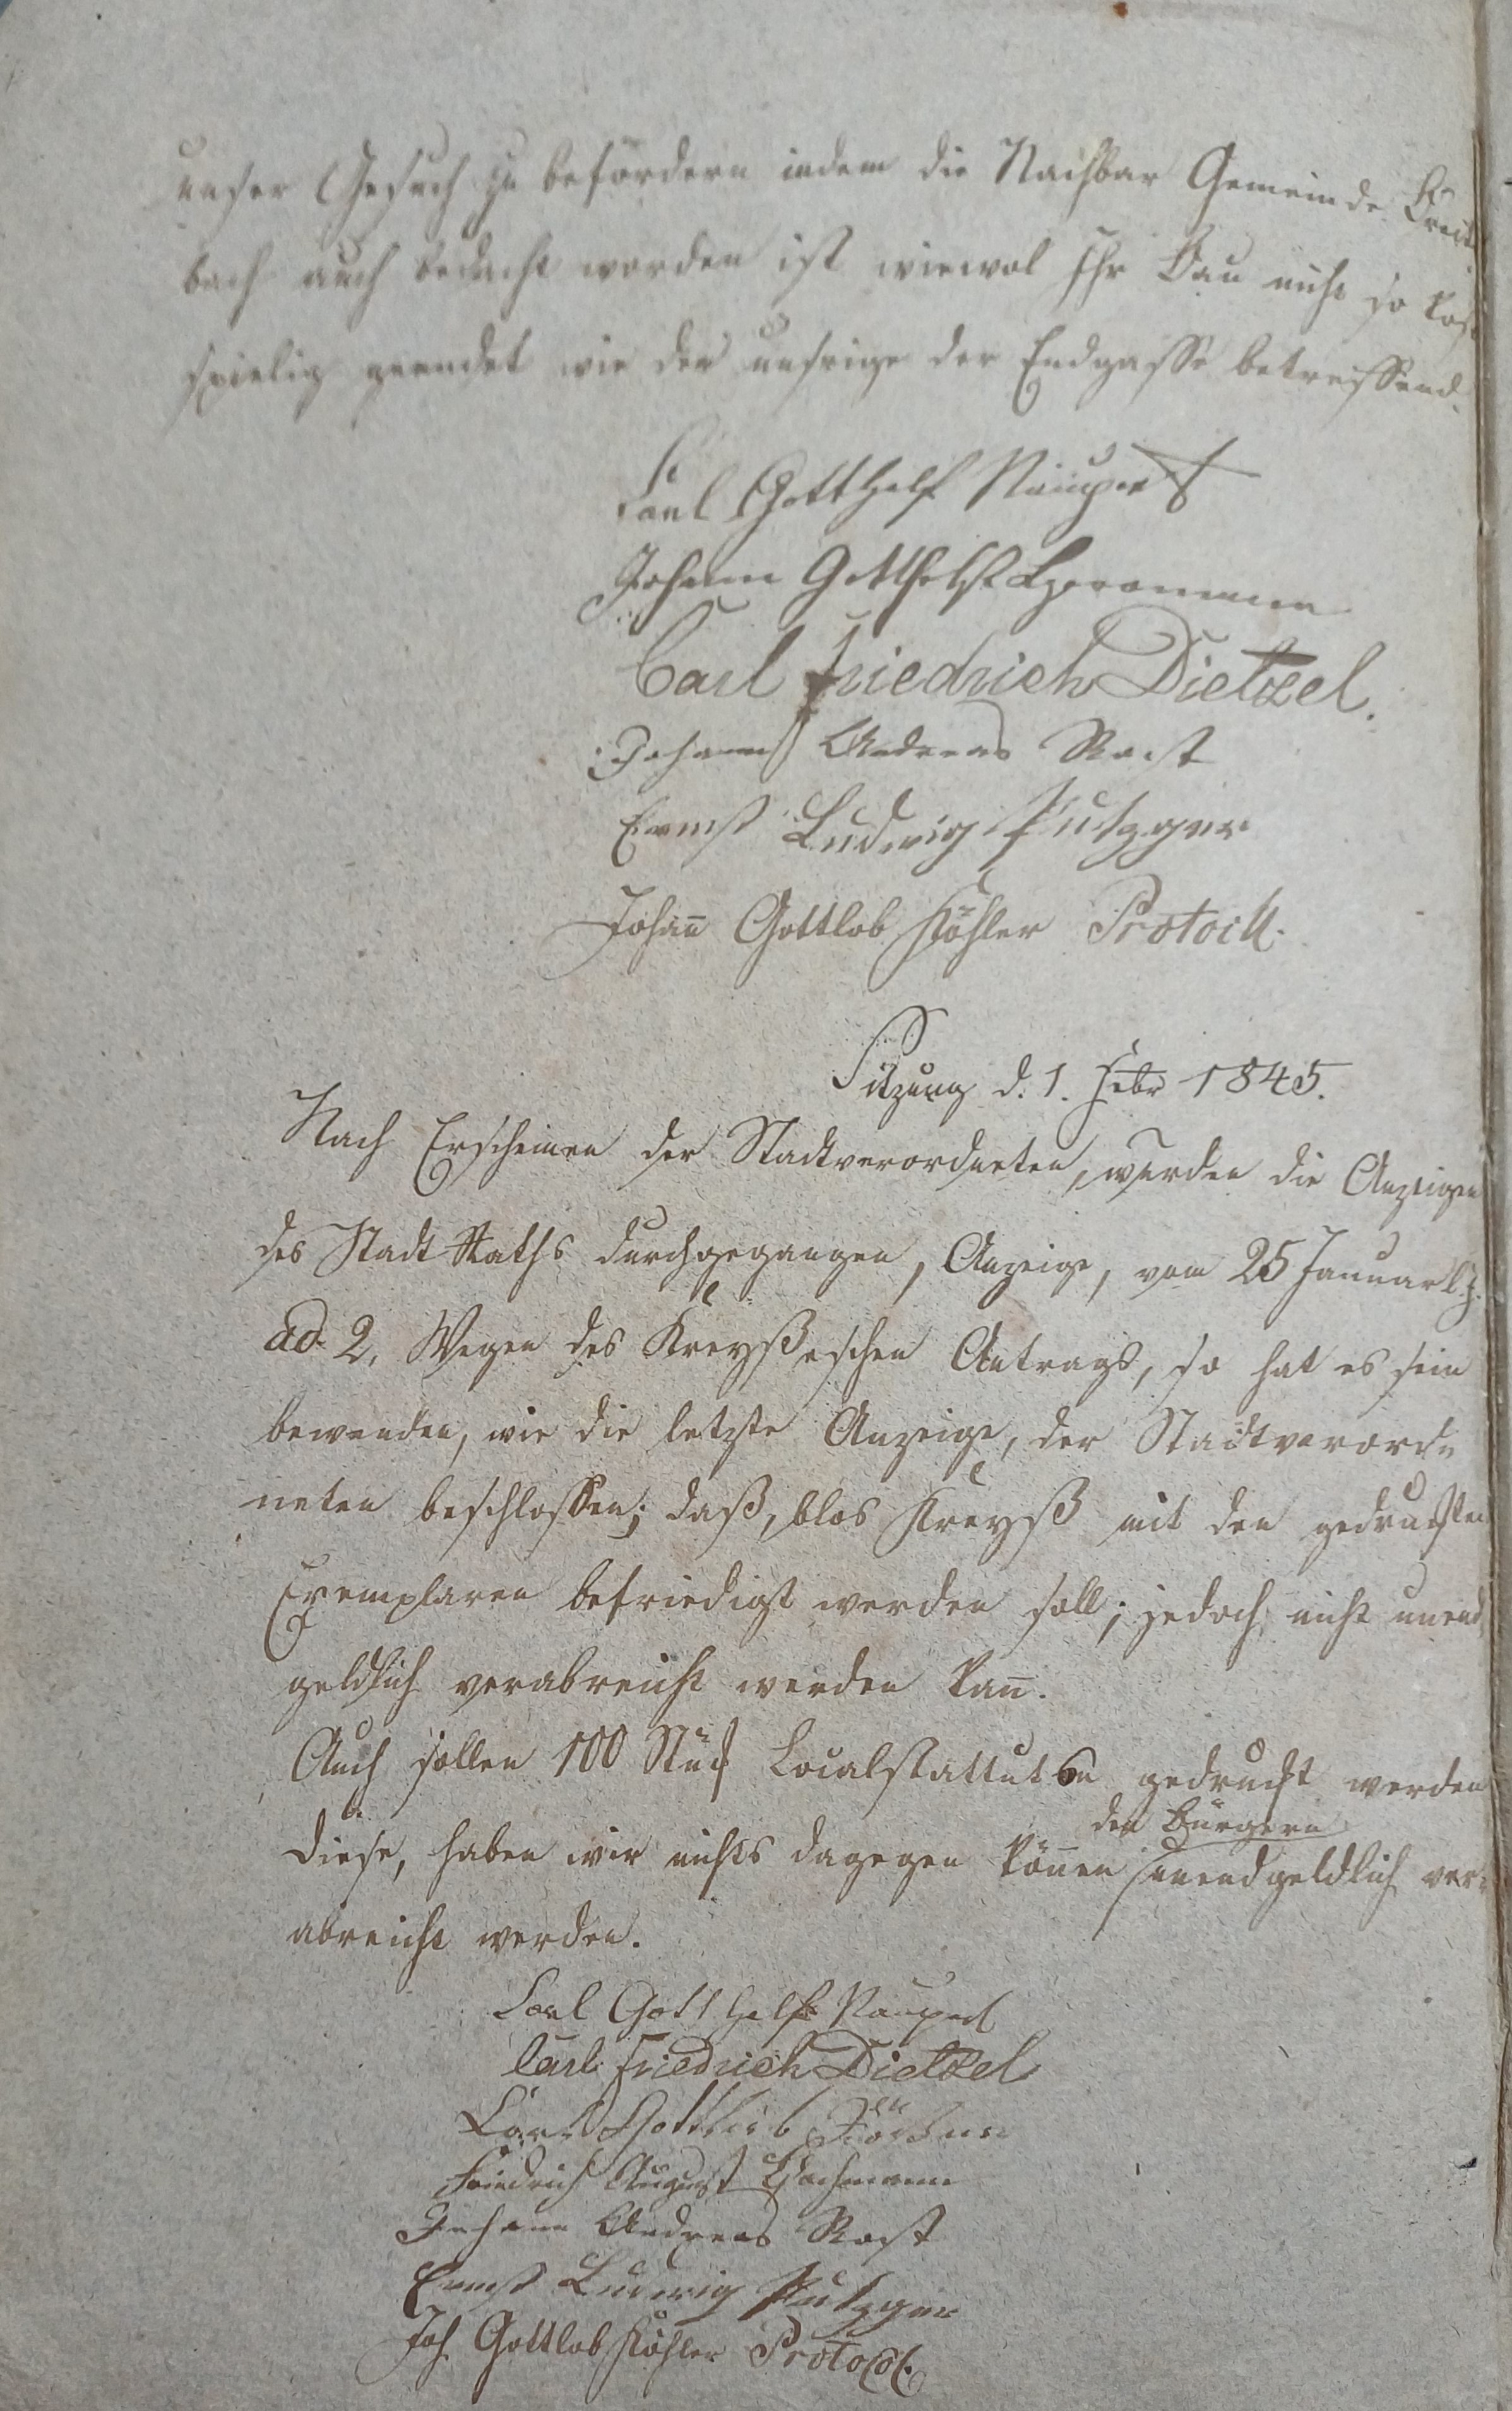 unser Gesuch zu befördern indem die Nachbar Gemeinde
bach auch bedacht worden ist wiewol Ihr Bau nicht so kost
spielig geendet wie der unsrige der Endgasse betreffend.
Carl Gotthelf Naupert
Johann Gotthelf
Carl Friedrich Dietzel.
Johann Andreas Rost
Ernst Ludwig Putzger
Johan̄ Gottlob Köhler Protock.
Sitzung d. 1. Febr 1845.
Nach Erscheinen der Stadtverordneten, wurden die Anzeigen
des Stadt Raths durchgegangen, Anzeige, vom 25 Januar l. J.
ad. 2, Wegen des Kreyßeschen Antrags, so hat es sein
bewenden, wie die letzte Anzeige, der Stadtverord
neten beschlossen; daß, blos Kreyß mit den gedruckten
Exemplaren befriedigt werden soll; jedoch nicht unend
geldlich verabreicht werden kan̄.
Auch sollen 100 Stück Localstattuten gedruckt werden
den Bürgern
diese, haben wir nichts dagegen kön̄en unendgeldlich ver
abreicht werden.
Carl Gotthelf Naupert
Carl Friedrich Dietzel
Carl Gottlieb
Friedrich August Bachmann
Johann Andreas Rost
Ernst Ludwig Putzger
Joh. Gottlob Köhler Protocol.